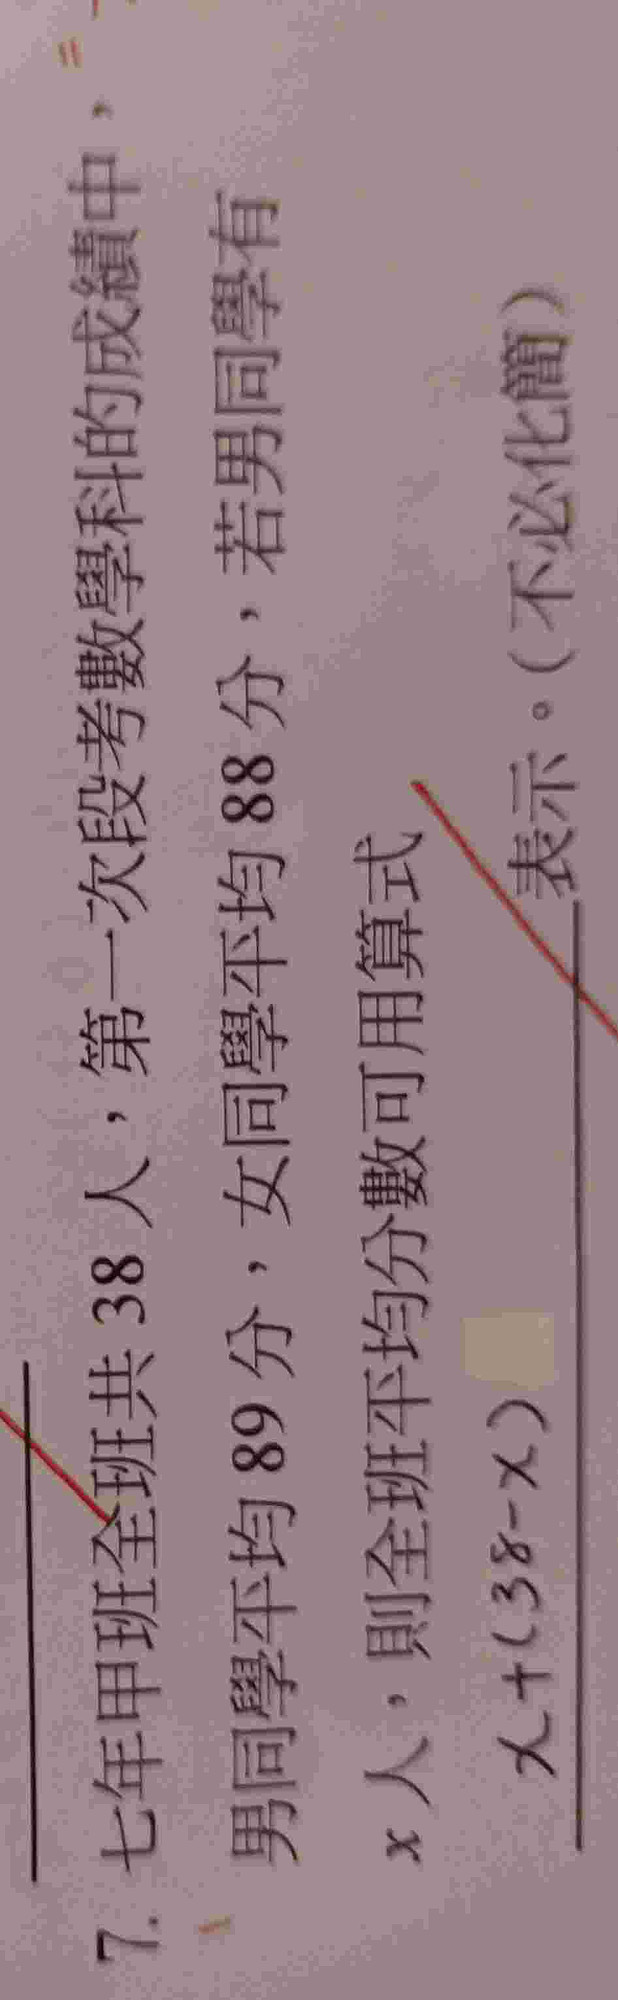 7. 七年甲班全班共 38 人，第一次段考數學科的成績中，
男同學平均 89 分，女同學平均 88 分，若男同學有
x 人，則全班平均分數可用算式
x+(38-x) 表示。(不必化簡)